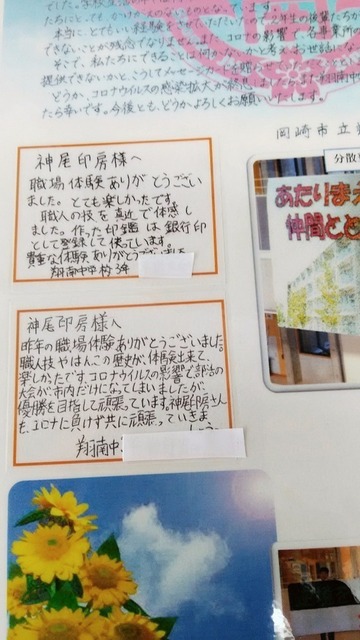 とっても、かけがえのないものとなっています。
本当に、とてもいい経験をさせていただいたので2年生の後輩たちが
できないことが残念でなりません。コロナの影響で各事業所の
そこで、私たちにできることは何かないかと考え、お世話になっ
提供できないかと、こうしてメッセージ
どうか、コロナウイルスの感染拡大が
たら幸いです。今後とも、どうかよろしくお願いいたします。
岡崎市立
神尾印房様へ
職場体験ありがとうござい
ました。とても楽しかったです。
職人の技を真近で体感し
ました。作った印鑑は銀行印
として登録して使っています。
貴重な体験ありがとうございました
翔南中学校3年
神尾印房様へ
昨年の職場体験ありがとうございました。
職人技やはんこの歴史が、体験出来て、
楽しかったです。コロナウイルスの影響で部活の
大会が市内だけになってしまいましたが、
優勝を目指して頑張っています。神尾印房さん
も、コロナに負けず共に頑張っていきま
しょう。
翔南中
分散
あたりまえ
仲間とと